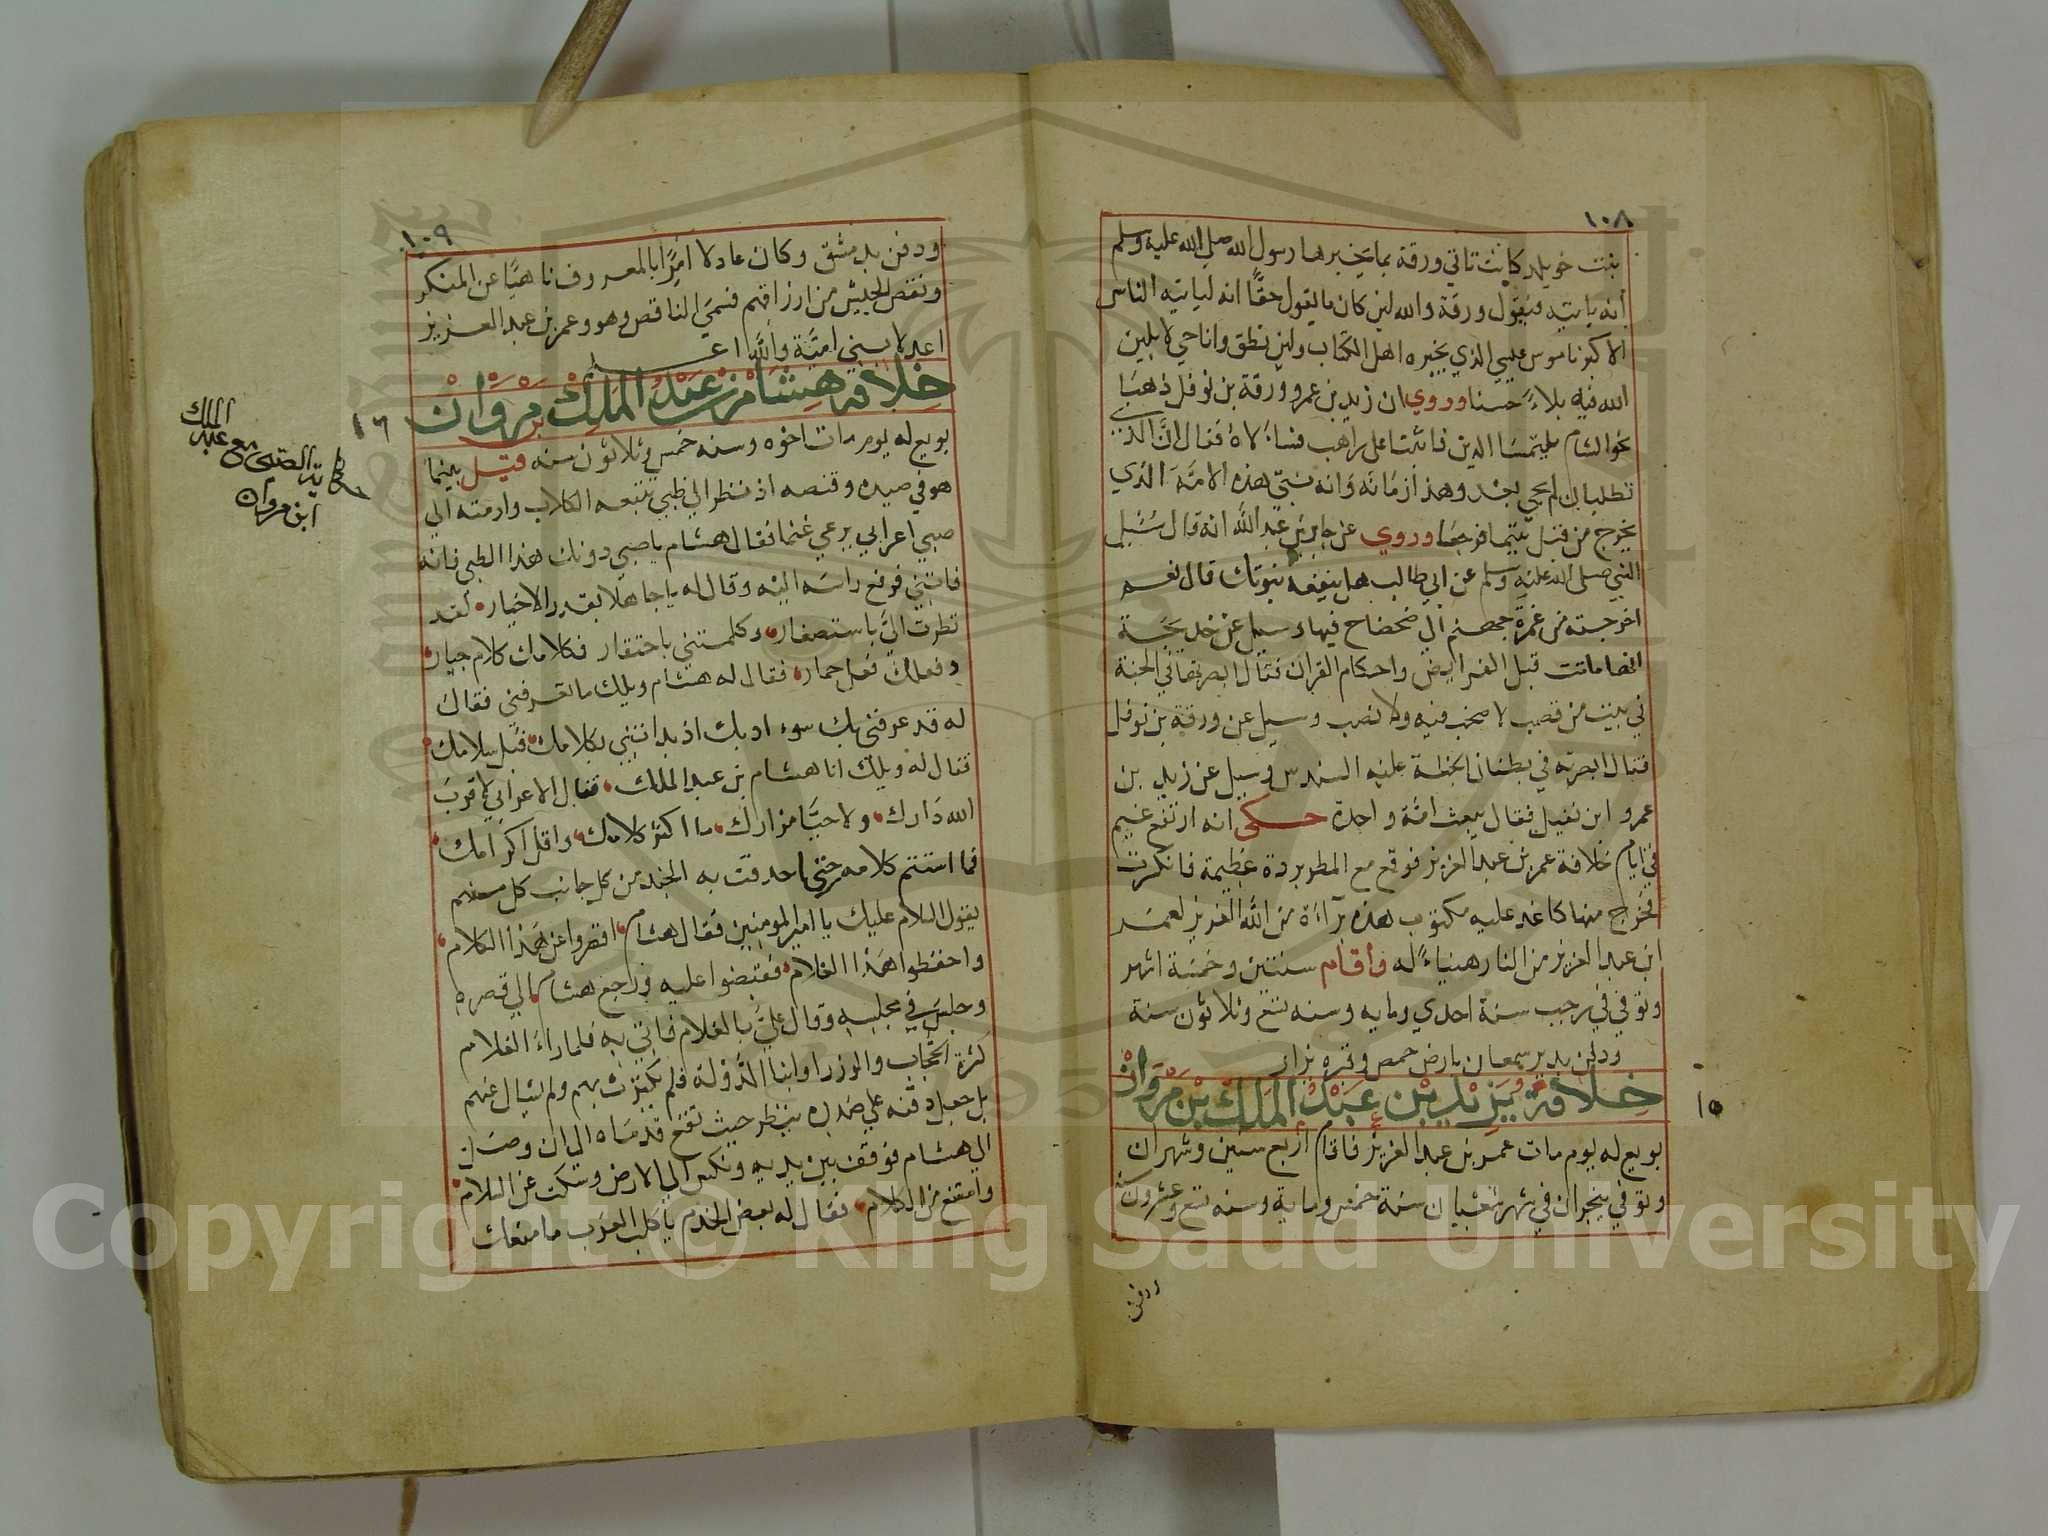 ١٠٨
بنت خويلد كانت تاتي ورقة بما يخبرها رسول الله صلي الله عليه وسلم
أنه ياتيه فيقول ورقة والله لين كان ما يقول حقًا انه لياتيه الناموس
الاكبر ناموس عيسي الذي يخبره اهل الكتاب ولين نطق وانا حي لابلين
الله فيه بلاءً حسنا وروي ان زيد بن عمرو وورقة بن نوفل ذهبا
نحو الشام يلتمسا الدين فاتيا على راهب فسالاه فقال ان الذي
تطلبان لم يجي بعد وهذا زمانه وانه نبي هذه الامة الذي
يخرج من قبل تيما فرجعا وروي عن جابر بن عبد الله انه قال سئل
النبي صلى الله عليه وسلم عن ابي طالب هل ينفعه نبوتك قال نعم
اخرجته من غمرة جهنم الي ضحضاح فيها وسيل عن خديجة
انها ماتت قبل الفرايض واحكام القران فقال ابصرتها في الجنة
في بيت من قصب لا صخب فيه ولا نصب وسيل عن ورقة بن نوفل
فقال ابصرته في بطنان الجنة عليه السندس وسيل عن زيد بن
عمرو ابن نفيل فقال يبعث امة واحدة حكى انه ارتفع غيم
في ايام خلافة عمر بن عبد العزيز فوقع مع المطر بردة عظيمة فانكسرت
فخرج منها كاغد عليه مكتوب هذه برآءة من الله العزيز لعمر
ابن عبد العزيز من النار هنياءً له وأقام سنتين وخمسة اشهر
وتوفي في رجب سنة احدي وماية وسنه تسع وثلاثون سنة
ودفن بدير سمعان بارض حمص وقبره يزار
خلافة يزيد بن عبد الملك بن مروان
١٥
بويع له يوم مات عمر بن عبد العزيز فاقام اربع سنين وشهران
وتوفي بنجران في شهر شعبان سنة خمس وماية وسنه تسع وعشرون سنة
ودفن
١٠٩
ودفن بدمشق وكان عادلا آمرًا بالمعروف ناهيًا عن المنكر
ونقص الجيش من ارزاقهم فسمي الناقص وهو وعمر بن عبد العزيز
اعدلا بني امية والله اعلم
خلافة هشام بن عبد الملك بن مروان
١٦
بويع له يوم مات اخوه وسنه خمس وثلاثون سنه قيل بينما
هو في صيده وقنصه اذ نظر الي ظبي تتبعه الكلاب وارمته الي
صبي اعرابي يرعي غنما فقال هشام يا صبي دونك هذا الظبي فانه
فاتني فرفع راسه اليه وقال له يا جاهلا بقدر الاخيار لقد
نظرت اليَّ باستصغار وكلمتني باحتقار فكلامك كلام جبار
وفعلك فعل حمار فقال له هشام ويلك ما تعرفني فقال
له قد عرفني بك سوء ادبك اذ بداتني بكلامك قبل سلامك
فقال له ويلك انا هشام بن عبد الملك فقال الاعرابي لا قرب
الله دارك ولا حيَّا مزارك ما اكثر كلامك واقل اكرامك
فما استتم كلامه حتى احدقت به الجند من كل جانب كل منهم
يقول السلام عليك يا امير المومنين فقال هشام اقصروا عن هذا الكلام
واحفظوا هذا الغلام فقبضوا عليه ورجع هشام الي قصره
وجلس في مجلسه وقال عليَّ بالغلام فاتي به فلما راءَ الغلام
كثرة الحجاب والوزرا وابنا الدولة فلم يكترث بهم ولم يسال عنهم
بل جعل ذقنه علي صدره ينظر حيث تقع قدماه الي ان وصل
الي هشام فوقف بين يديه ونكس الي الارض وسكت عن السلام
وامتنع من الكلام فقال له بعض الخدم يا كلب العرب ما منعك
حكاية الصبي مع عبد الملك
ابن مروان
Copyright © King Saud University